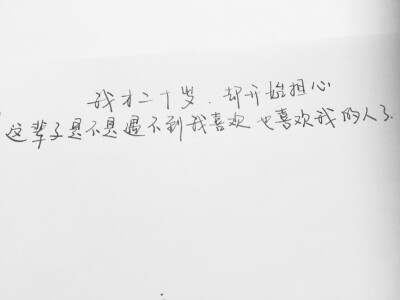 我才二十岁，却开始担心
这辈子是不是遇不到我喜欢也喜欢我的人了.